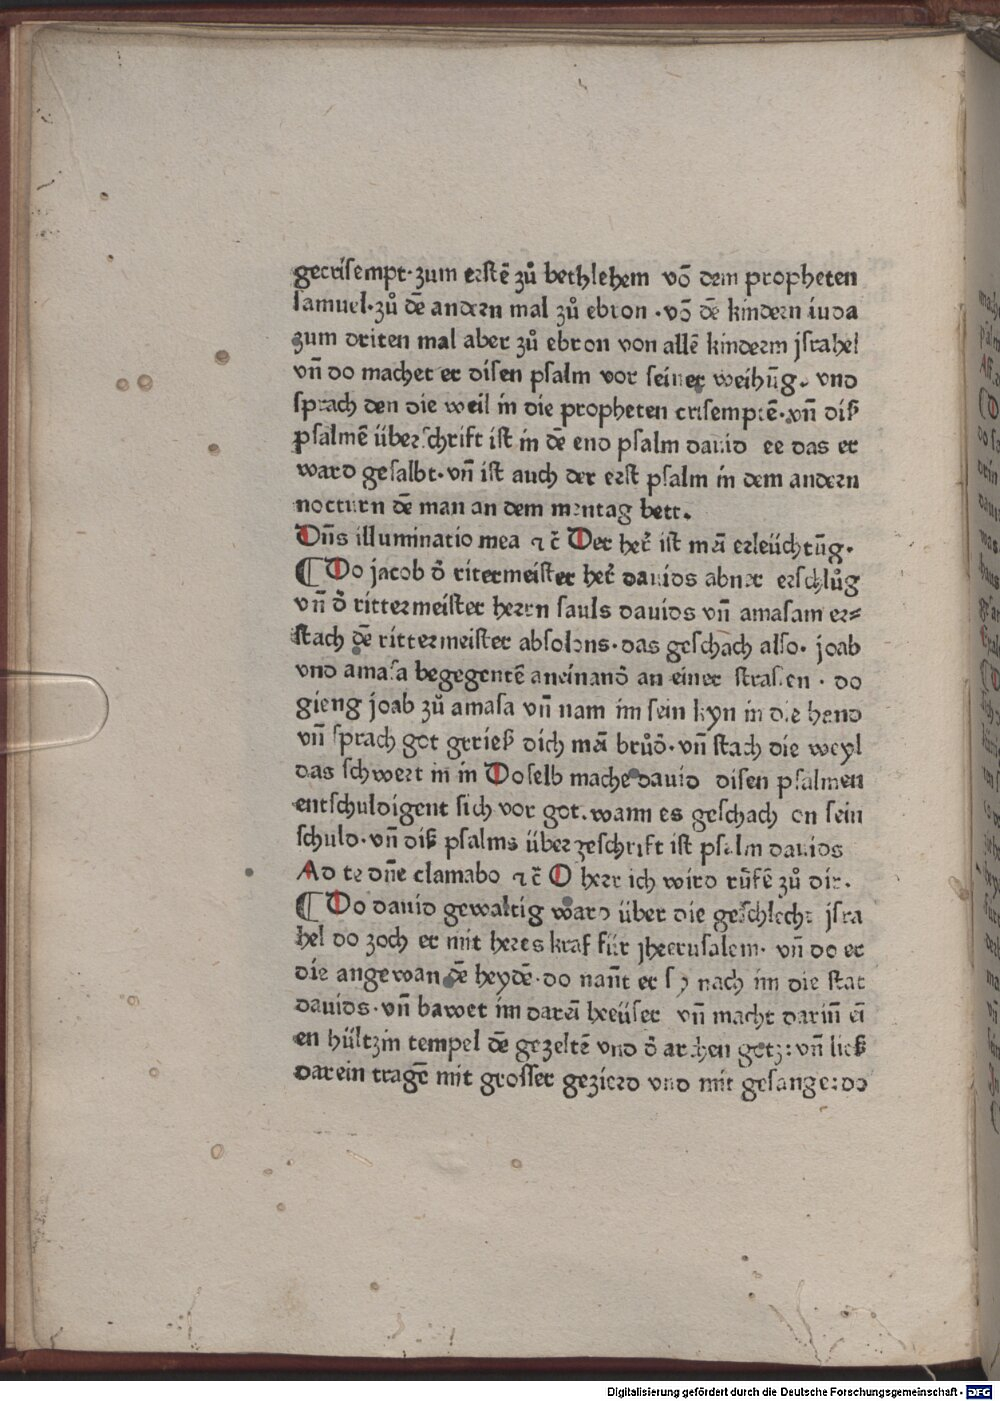 gecrisempt·zum erstē zů bethlehem vō dem propheten
samuel·zů dē andern mal zů ebron ·vō dē kindern iuda
zum driten mal aber zů ebron von allē kinderm jsrahel
vn̄ do machet er disen psalm vor seiner weihūg. vnd
sprach den die weil in die propheten crisemptē·vn̄ diß
psalmē überschrift ist in dē end psalm dauid ee das er
ward gesalbt·vn̄ ist auch der erst psalm in dem andern
nocturn dē man an dem mentag bett.
Dn̄s illuminatio mea ⁊ c̄ Der her̄ ist mā erleüchtūg.
¶ Do jacob d̄ ritermeister her̄ dauids abner erschlůg
vn̄ d̄ rittermeister herrn sauls dauids vn̄ amasam er⸗
stach dē rittermeister absolons·das geschach also. joab
vnd amasa begegentē aneinand̄ an einer strassen · do
gieng joab zů amasa vn̄ nam im sein kyn in die hand
vn̄ sprach got grieß dich mā brůd̄·vn̄ stach die weyl
das schwert in in Doselb mache dauid disen psalmen
entschuldigent sich vor got.wann es geschach on sein
schuld·vn̄ diß psalms überzeschrift ist psalm dauids
Ad te dn̄e clamabo ⁊ c̄ O herr ich wird rūfē zů dir.
¶ Do dauid gewaltig ward über die geschlecht jsra
hel do zoch er mit heres kraf für jherusalem· vn̄ do er
die angewan dē heydē·do nan̄t er sy nach im die stat
dauids·vn̄ bawet im darā heeüser vn̄ macht darin̄ ei
en hültzin tempel dē gezeltē vnd d̄ archen gotz:vn̄ ließ
darein tragē mit grosser gezierd vnd mit gesange:do
Digitalisierung gefördert durch die Deutsche Forschungsgemeinschaft - DFG